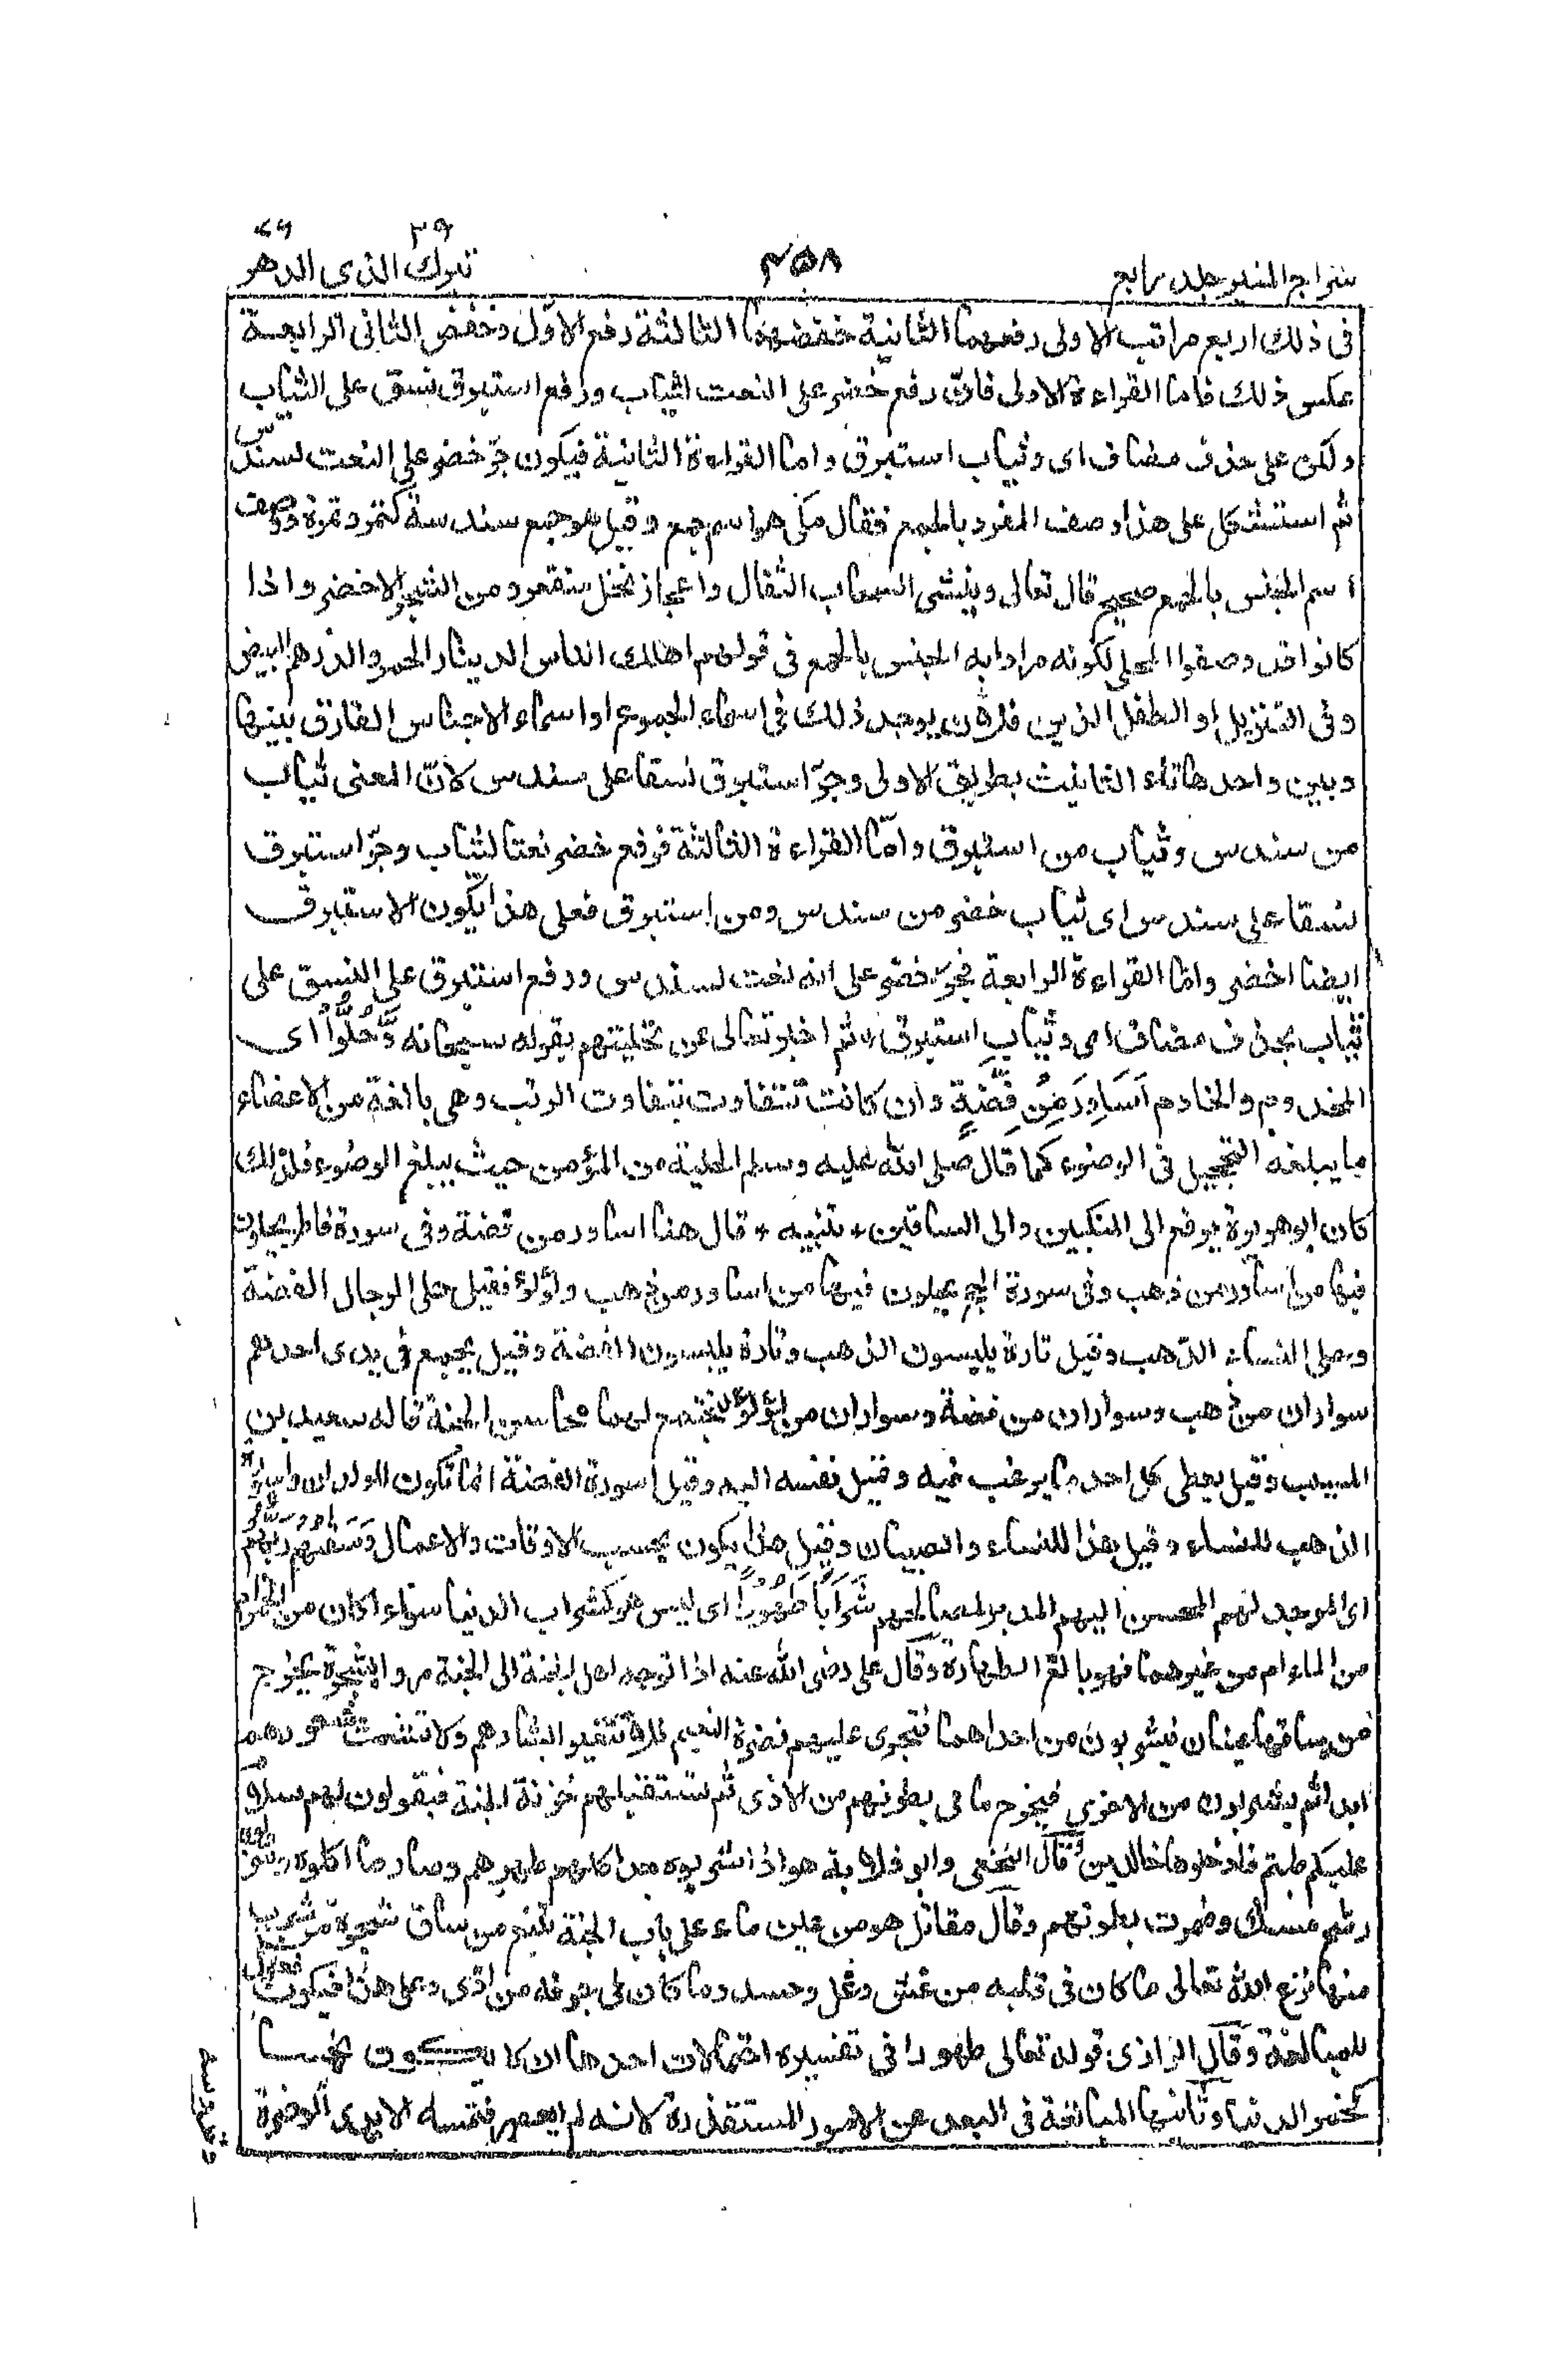 سراج المنير جلد رابع
٤٥٨
تبرك الذى ٢٩ الدهر ٧٦
فى ذلك اربع مراتب الاولى رفعهما الثانية خفضهما الثالثة رفع الاوّل وخفض الثانى الرابعة
عكس ذلك فاما القراءة الاولى فانّ رفع خضر على النعت لثياب ورفع استبرق نسق على الثياب
ولكن على حذف مضاف اى وثياب استبرق واما القراءة الثانية فيكون جرّ خضر على النعت لسندس
ثم استشكل على هذا وصف المفرد بالجمع فقال مكى هو اسم جمع وقيل هو جمع سندسة كتمر وتمرة ووصف
اسم الجنس بالجمع صحيح قال تعالى وينشئ السحاب الثقال واعجاز نخل منقعر ومن الشجر الاخضر واذا
كانوا قد وصفوا المحلى لكونه مرادا به الجنس بالجمع فى قولهم اهلك الناس الدينار الحمر والدرهم البيض
وفى التنزيل او الطفل الذين فلان يوجد ذلك فى اسماء الجموع او اسماء الاجناس الفارق بينها
وبين واحدها تاء التانيث بطريق الاولى وجرّ استبرق نسقا على سندس لانّ المعنى ثياب
من سندس وثياب من استبرق وامّا القراءة الثالثة فرفع خضر نعتا لثياب وجرّ استبرق
نسقا على سندس اى ثياب خضر من سندس ومن استبرق فعلى هذا يكون الاستبرق
ايضا اخضر واما القراءة الرابعة فجرّ خضر على انه نعت لسندس ورفع استبرق على النسق على
ثياب بحذف مضاف اى وثياب استبرق ثم اخبر تعالى عن تحليتهم بقوله سبحانه وَّحُلُّوْا اى
المخدوم والخادم اَسَاوِرَ مِنْ فِضَّةٍ وان كانت تتفاوت بتفاوت الرتب وهى بالغة من الاعضاء
ما يبلغه التحجيل فى الوضوء كما قال صلى الله عليه وسلم الحلية من المؤمن حيث يبلغ الوضوء فلذلك
كان ابو هريرة يرفع الى المنكبين والى الساقين * تنبيه * قال هنا اساور من فضة وفى سورة فاطر يحلون
فيها من اساور من ذهب وفى سورة الحج يحلون فيها من اساور من ذهب ولؤلؤ فقيل حلى الرجال الفضة
وحلى النساء الذهب وقيل تارة يلبسون الذهب وتارة يلبسون الفضة وقيل يجمع فى يدى احدهم
سواران من ذهب وسواران من فضة وسواران من لؤلؤ ليجتمع لهما محاسن الجنة قاله سعيد بن
المسيب وقيل يعطى كل احد ما يرغب فيه وتميل نفسه اليه وقيل اسورة الفضة انما تكون للولدان واسورة
الذهب للنساء وقيل هذا للنساء والصبيان وقيل هذا يكون بحسب الاوقات والاعمال وَسَقٰىهُمْ رَبُّهُمْ
اى الموجد لهم المحسن اليهم المدبر لمصالحهم شَرَابًا طَهُوْرًا اى ليس هو كشراب الدنيا سواء اكان من الخمر ام
من الماء ام من غيرهما فهو بالغ الطهارة وقال على رضى الله عنه اذا توجه اهل الجنة الى الجنة مروا بشجرة يخرج
من ساقها عينان فيشربون من احداهما فتجرى عليهم نضرة النعيم فلا تتغير ابشارهم ولا تتشعث شعورهم
ابدا ثم يشربون من الاخرى فيخرج ما فى بطونهم من الاذى ثم تستقبلهم خزنة الجنة فيقولون لهم سلام
عليكم طبتم فادخلوها خالدين وقال النخعى وابو قلابة هو اذا شربوه بعد اكلهم طهرهم وصار ما اكلوه وشربوه
رشح مسك وضمرت بطونهم وقال مقاتل هو من عين ماء على باب الجنة تنبع من ساق شجرة من شرب
منها نزع الله تعالى ما كان فى قلبه من غش وغل وحسد وما كان فى جوفه من اذى وعلى هذا فيكون فعولا
للمبالغة وقال الرازى قوله تعالى طهورا فى تفسيره احتمالات احدها ان لا يكون نجسا
كخمر الدنيا وثانيها المبالغة فى البعد عن الامور المستقذرة لانه لم يعصر فتمسه الايدى الوضرة